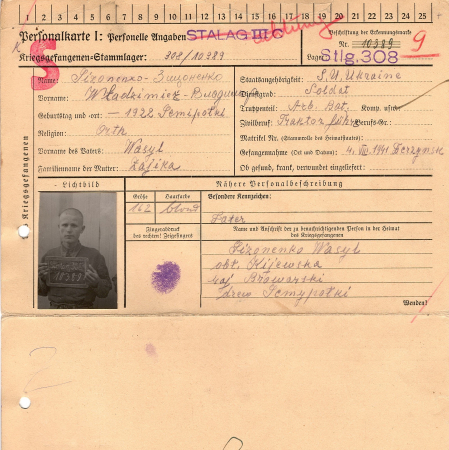 1 2 3 4 5 6 7 8 9 10 11 12 13 14 15 16 17 18 19 20 21 22 23 24 25
Personalkarte I: Personelle Angaben STALAG III C Achtung
Beschriftung der Erkennungsmarke
Kriegsgefangenen-Stammlager: 308/10989 Nr. 10989 9
Lager: Stlg. 308
S
Kriegsgefangenen
Name:
Staatsangehörigkeit: S.U. Ukraine
Vorname: Wladzimierz
Dienstgrad: Soldat
Geburtstag und -ort: 1922
Truppenteil: Arb. Bat. Komp. usw.:
Religion: Orth
Zivilberuf: Berufs-Gr.:
Matrikel Nr. (Stammrolle des Heimatstaates):
Vorname des Vaters: Wasyl
Gefangennahme (Ort und Datum): 1941
Familienname der Mutter:
Ob gesund, krank, verwundet eingeliefert:
Lichtbild
Nähere Personalbeschreibung
Größe Haarfarbe Besondere Kennzeichen:
162 blond
Fingerabdruck
des rechten! Zeigefingers
Fater
Name und Anschrift der zu benachrichtigenden Person in der Heimat
des Kriegsgefangenen
10989
Wasyl
obl. Kijewska
raj Browarski
Wenden!